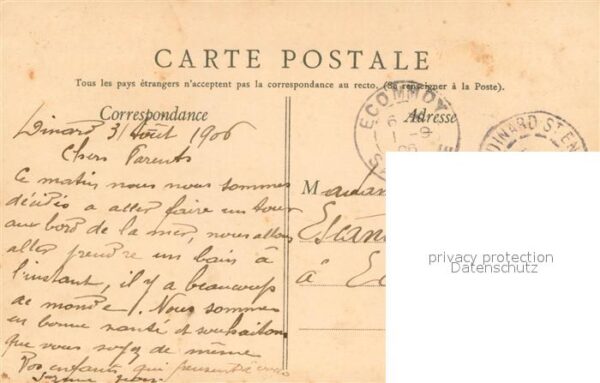 CARTE POSTALE
Tous les pays étrangers n'acceptent pas la correspondance au recto. (Se renseigner à la Poste).
Correspondance
Adresse
Dinard 31 Août 1906
Chers Parents
Ce matin nous nous sommes
décidés a aller faire un tour
aux bord de la mer, nous allons
aller prendre un bain à
l'instant, il y a beaucoup
de monde. Nous sommes
en bonne santé et souhaitons
que vous soyez de même
Vos enfants qui
ECOMMOY
6
1 -9
06
DINARD ST EN
M
à
privacy protection
Datenschutz